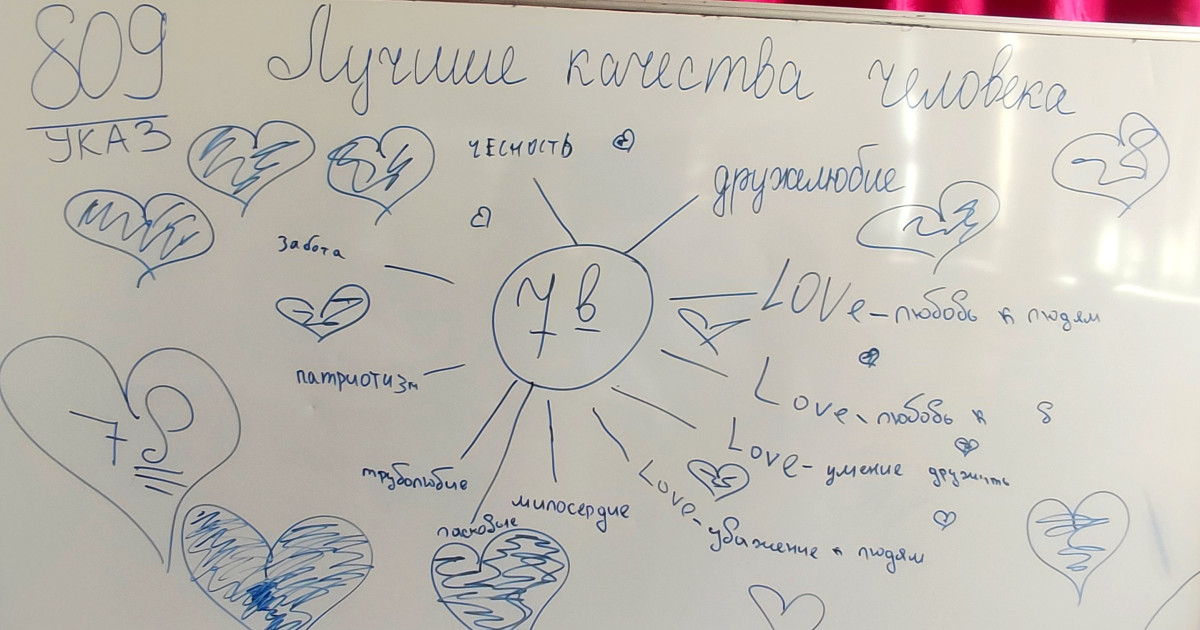 809
УКАЗ
Лучшие качества человека
чесность
дружелюбие
забота
7 в
LOVe - любовь к людям
патриотизм
Love - любовь к 8
7 в
Love - умение дружить
труболюбие
милосердие
Love - убижение к людям